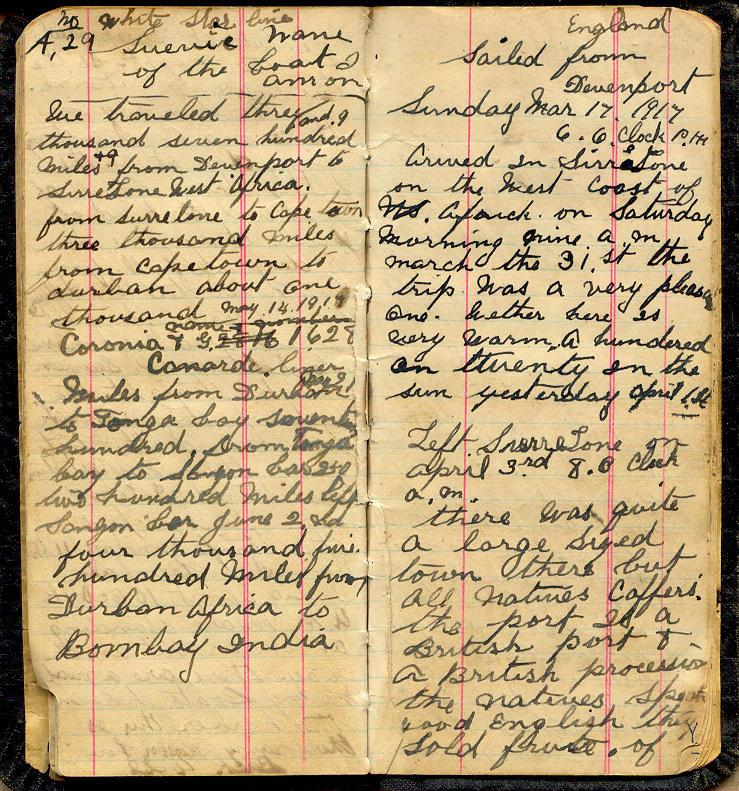 no White Star line
A, 29
Suevic Name
of the boat I
am on
We traveled three and 9
thousand seven hundred
Miles +9 from Devenport to
SirreLone West Africa.
from SurreLone to Cape town
three thousand miles
from Capetown to
durban about one
thousand May. 14. 19
Coronia 
Canarde. liner
Miles from Durban
to Tonga bay seventy
hundred. from Tonga
bay to bar 250
two hundred Miles left
bar June 2, nd
four thousand five.
hundred Miles from
Durban Africa to
Bombay India
England
Sailed from
Devenport
Sunday Mar 17. 1917
6. O. Clock P. M
Arived in SirreLone
on the West Coast of
Africk. on Saturday
Morning nine a. m
march the 31. st the
trip was a very pleasant
one. Wether here is
very warm. A hundred
an twenty in the
sun yesterday April 1st
Left SierreLone on
April 3rd 8. O Clock
a. m.
there was quite
a large sized
town there but
All Natives Caffers.
the port is a
British port &
a British procession
the natives speak
good English they
Sold frute. of